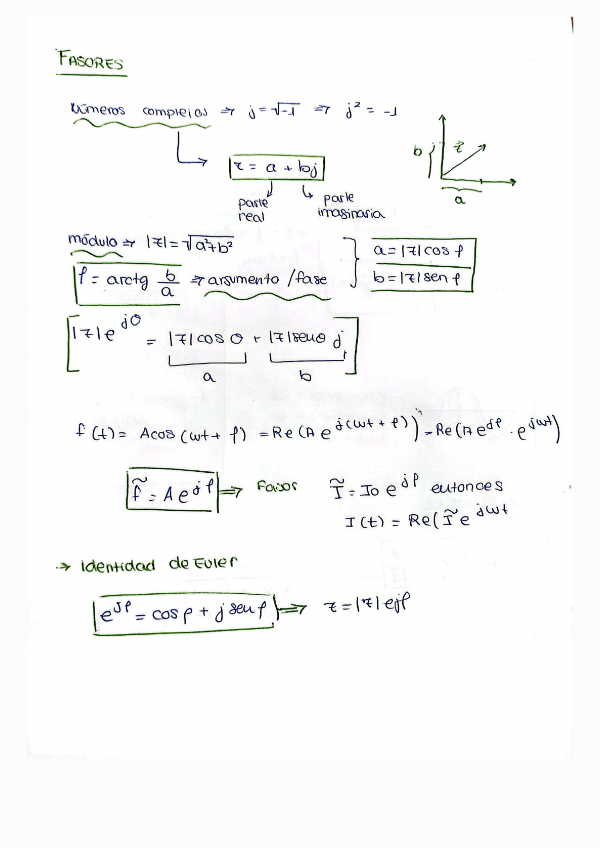 FASORES
Números complejos ⇒ j = √-1 ⇒ j² = -1
z = a + bj
parte real
parte imaginaria
b
z
a
módulo ⇒ |z| = √a²+b²
φ = arctg b/a ⇒ argumento / fase
a = |z| cos φ
b = |z| sen φ
|z| e^jθ = |z| cos θ + |z| sen θ j
a b
f(t) = A cos(ωt + φ) = Re(A e^j(ωt + φ)) = Re(A e^jφ · e^jωt)
f̃ = A e^jφ ⇒ Fasor Ĩ = I₀ e^jφ entonces
I(t) = Re(Ĩ e^jωt
→ Identidad de Euler
e^jφ = cos φ + j sen φ ⇒ z = |z| ejφ